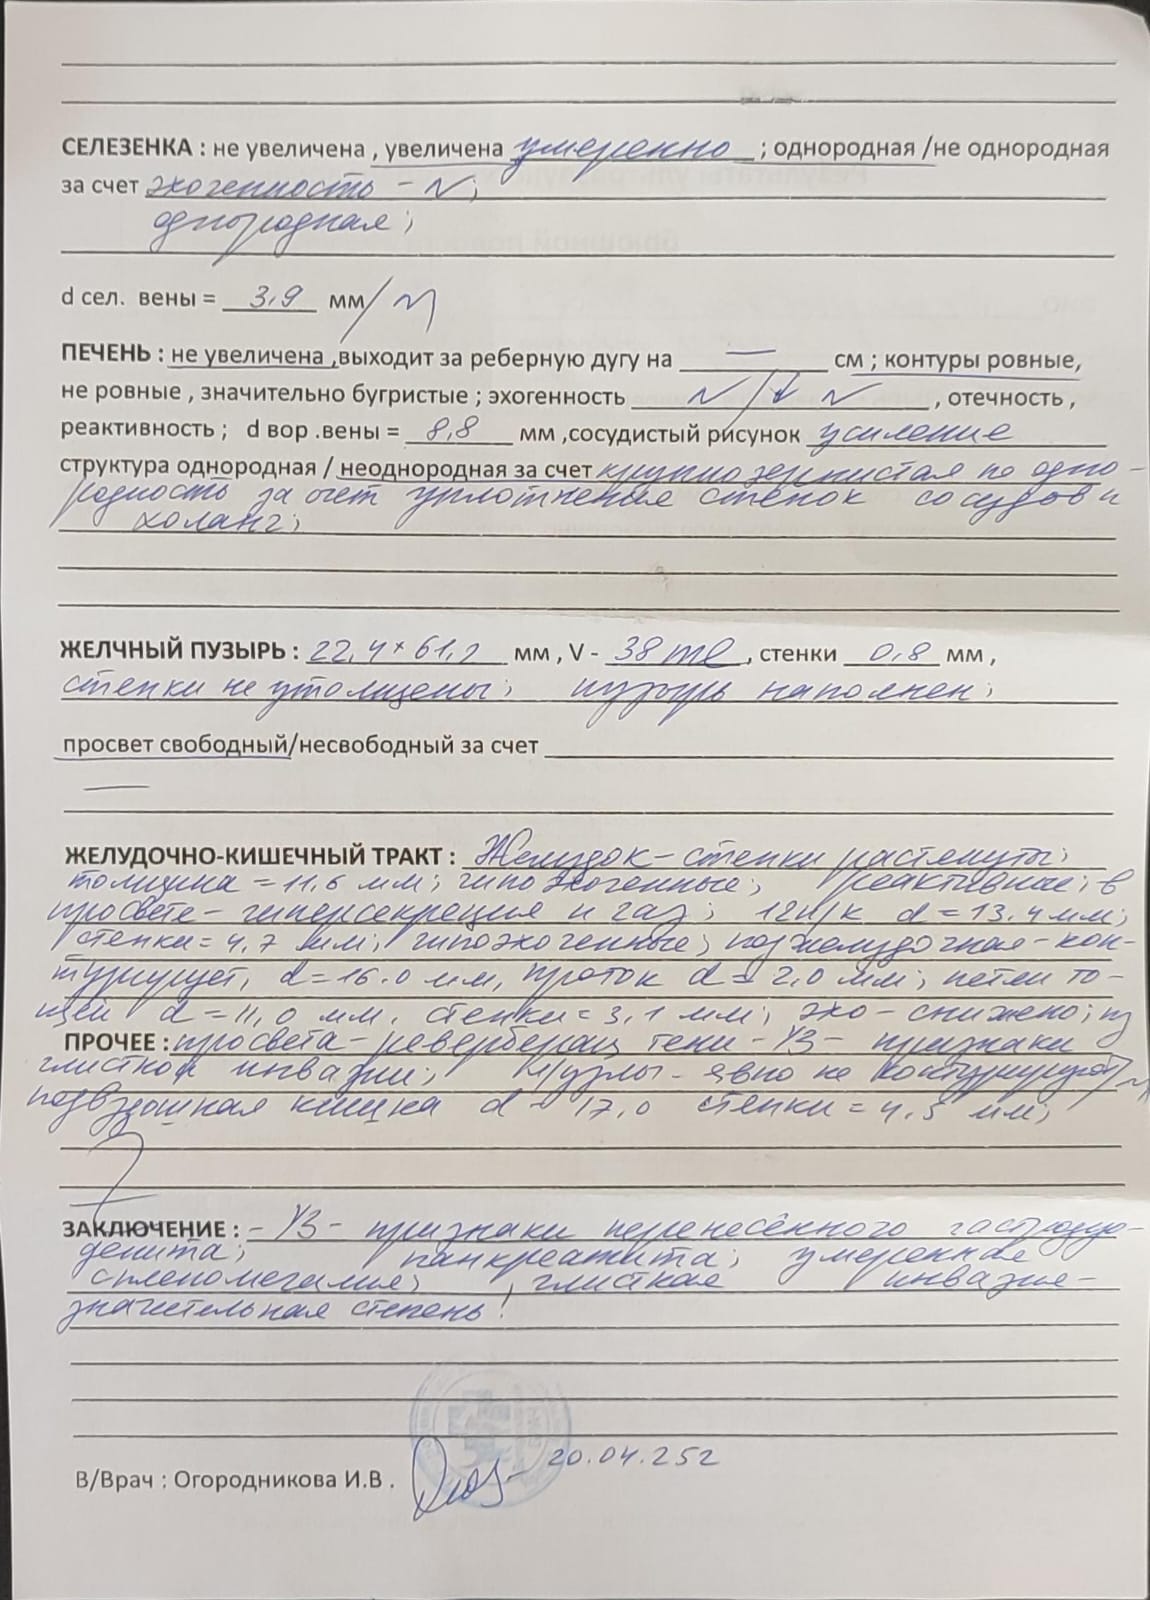 СЕЛЕЗЕНКА : не увеличена , увеличена умеренно ; однородная /не однородная
за счет эхогенность - N;
однородная;
d сел. вены = 3,9 мм/N
ПЕЧЕНЬ : не увеличена ,выходит за реберную дугу на — см ; контуры ровные,
не ровные , значительно бугристые ; эхогенность N/↓ N , отечность ,
реактивность ; d вор .вены = 8,8 мм ,сосудистый рисунок усиление
структура однородная / неоднородная за счет крупнозернистая не одно-
родность за счет уплотнения стенок сосудов и
холанг;
ЖЕЛЧНЫЙ ПУЗЫРЬ : 22,4 × 61,2 мм , V - 38 ml , стенки 0,8 мм ,
стенки не утолщены; пузырь наполнен;
просвет свободный/несвободный за счет
—
ЖЕЛУДОЧНО-КИШЕЧНЫЙ ТРАКТ : Желудок - стенки растянуты;
толщина = 11,6 мм; гипоэхогенные; реактивные; в
просвете - гиперсекреция и газ; 12п/к d = 13,4 мм;
стенки = 4,7 мм; гипоэхогенные; поджелудочная - кон-
турирует, d = 16.0 мм, проток d = 2,0 мм; петли то-
щей d = 11,0 мм. стенки = 3,1 мм; эхо - снижено; из
ПРОЧЕЕ : просвета - ревербрац тени - УЗ - признаки
глистной инвазии; л/узлы - явно не контурируют/
подвздошная кишка d - 17,0 стенки = 4,5 мм;
ЗАКЛЮЧЕНИЕ : - УЗ - признаки перенесённого гастродуо-
денита; панкреатита; умеренная
спленомегалия; глистная инвазия -
значительная степень!
В/Врач : Огородникова И.В . 20.04.25г